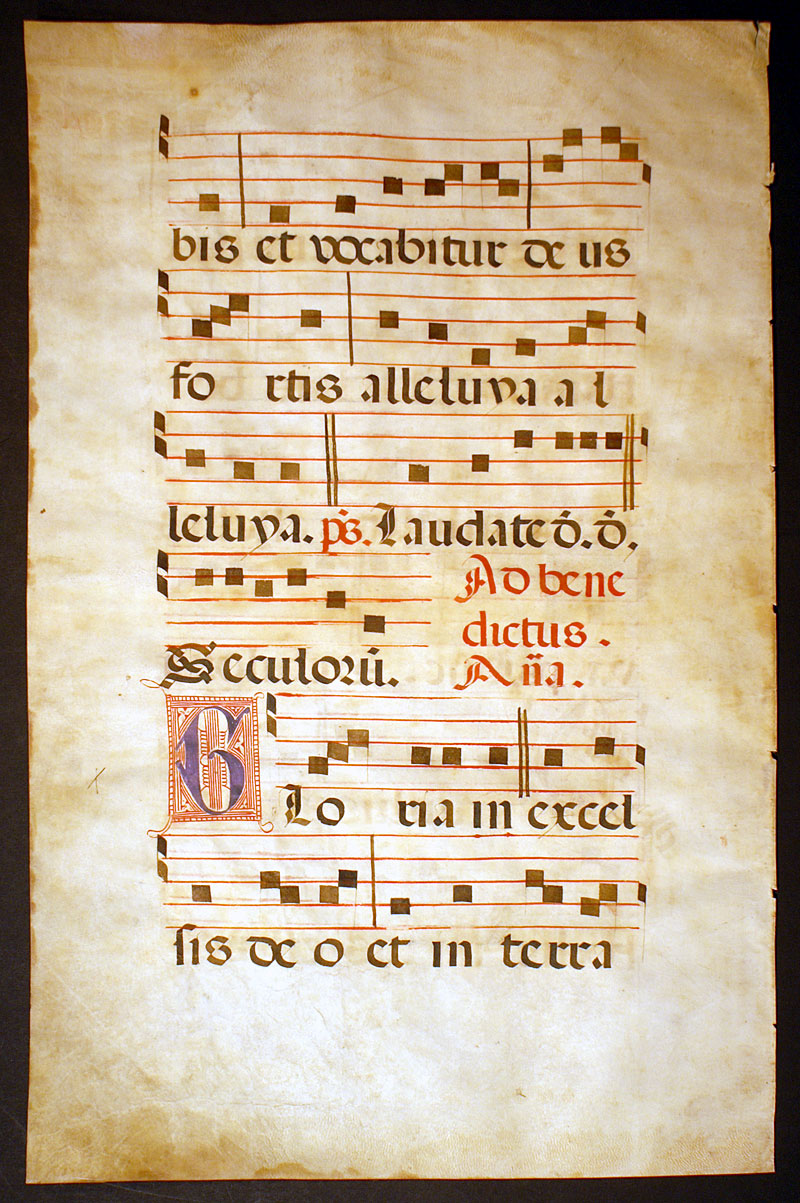 bis et vocabitur de us
fo rtis alleluya a l
leluya. ps. Laudate d. d.
Ad bene
dictus.
Seculorū. Aña.
Glo ria in excel
sis de o et in terra